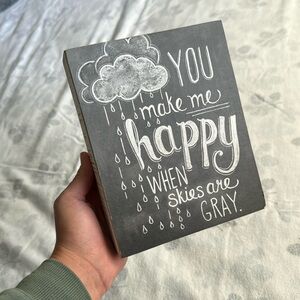 YOU
make me
happy
WHEN
skies are
GRAY.